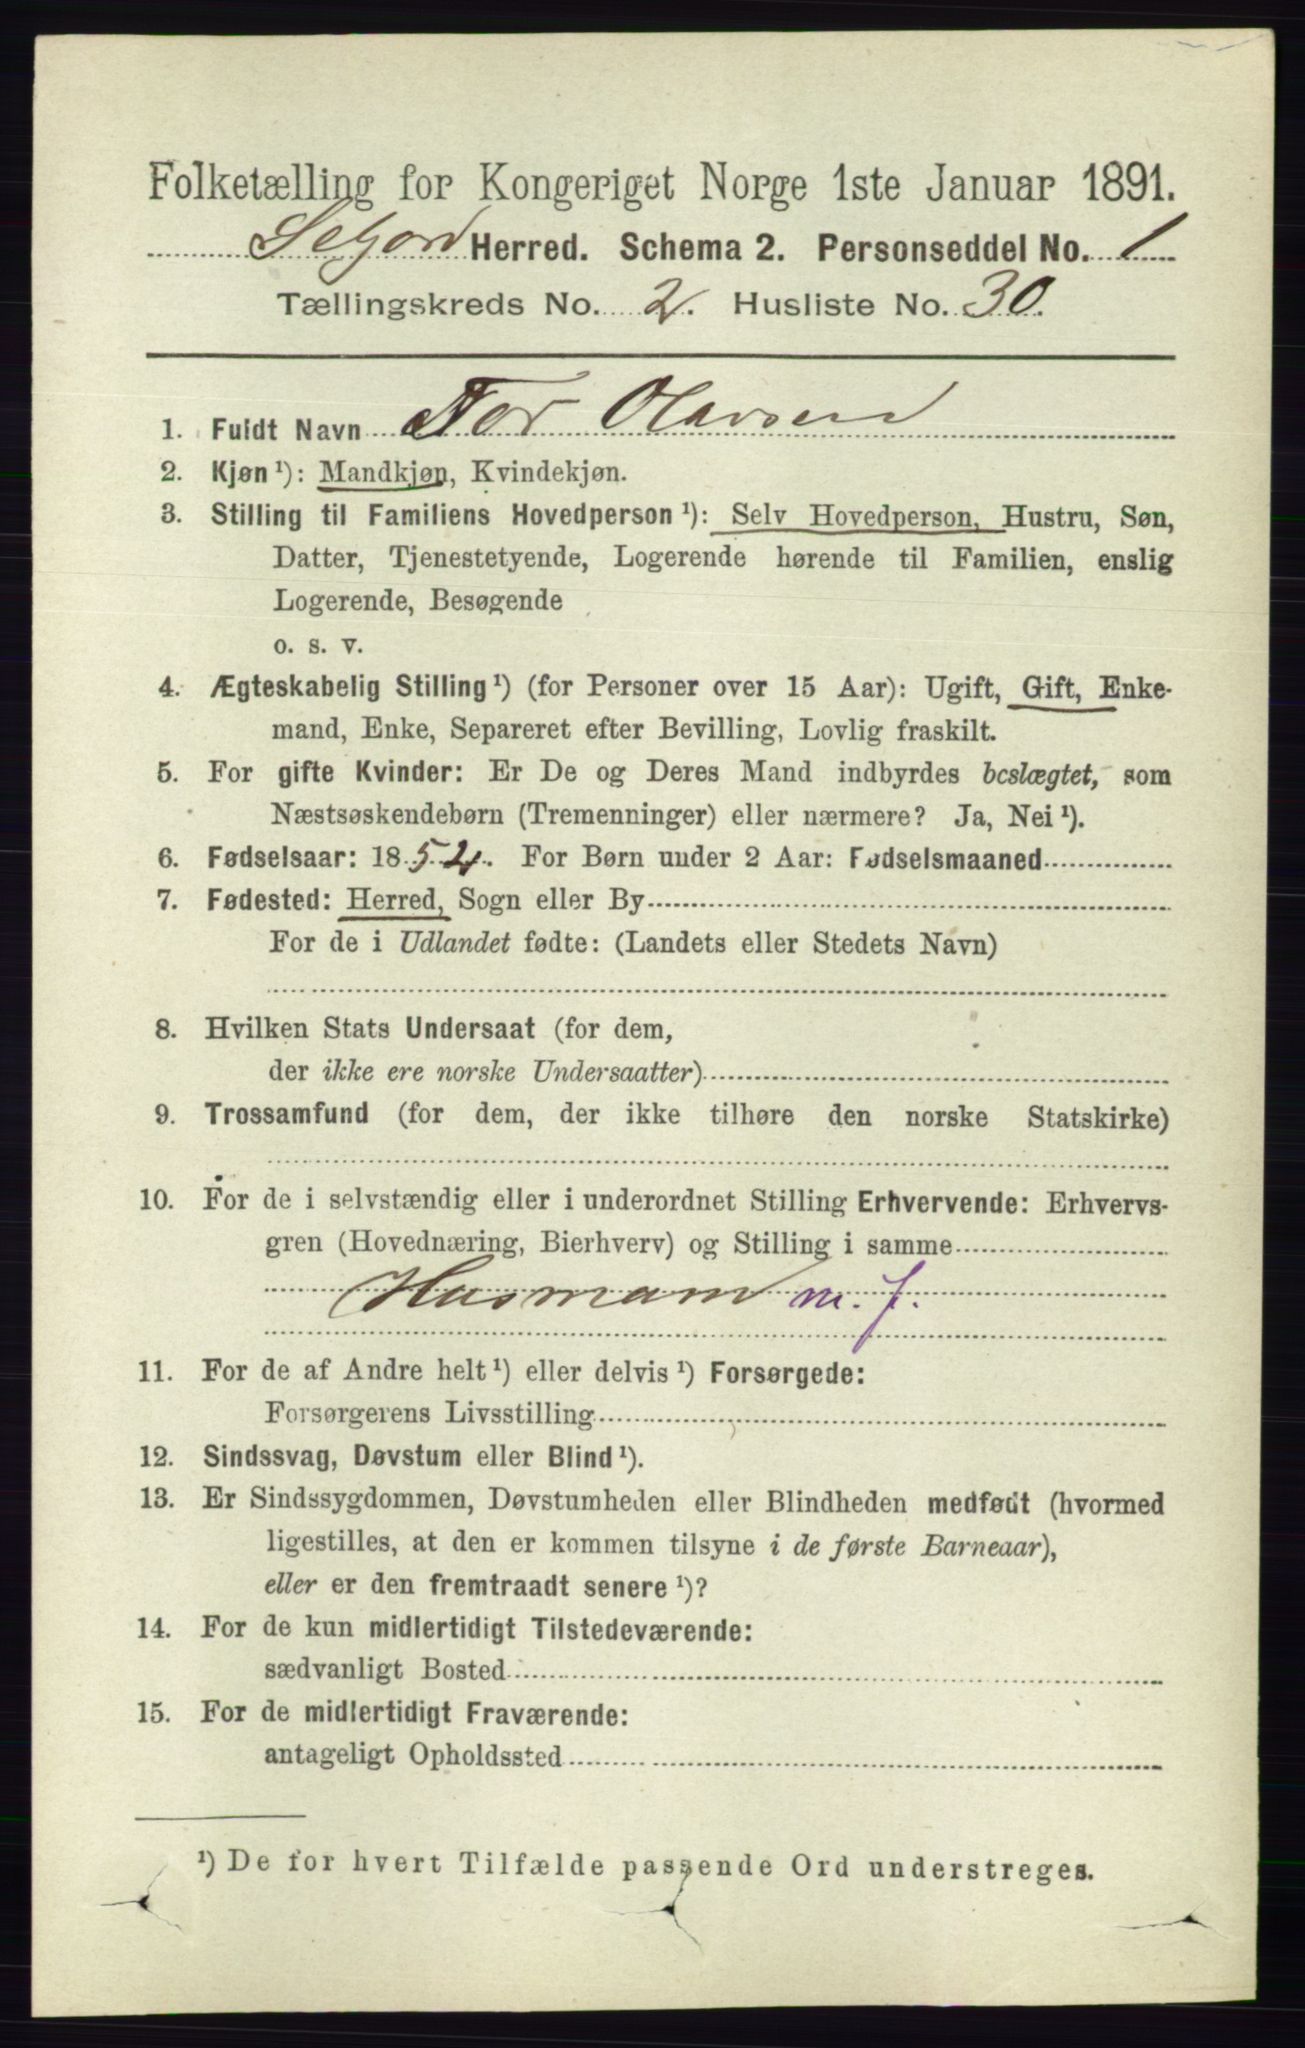 Folketælling for Kongeriget Norge 1ste Januar 1891.
Seljord Herred. Schema 2. Personseddel No. 1
Tællingskreds No. 2. Husliste No. 30.
1. Fuldt Navn Tor Olavsen
2. Kjøn ¹): Mandkjøn, Kvindekjøn.
3. Stilling til Familiens Hovedperson ¹): Selv Hovedperson, Hustru, Søn,
Datter, Tjenestetyende, Logerende hørende til Familien, enslig
Logerende, Besøgende
o. s. v.
4. Ægteskabelig Stilling ¹) (for Personer over 15 Aar): Ugift, Gift, Enke-
mand, Enke, Separeret efter Bevilling, Lovlig fraskilt.
5. For gifte Kvinder: Er De og Deres Mand indbyrdes beslægtet, som
Næstsøskendebørn (Tremenninger) eller nærmere? Ja, Nei ¹).
6. Fødselsaar: 1852. For Børn under 2 Aar: Fødselsmaaned
7. Fødested: Herred, Sogn eller By
For de i Udlandet fødte: (Landets eller Stedets Navn)
8. Hvilken Stats Undersaat (for dem,
der ikke ere norske Undersaatter)
9. Trossamfund (for dem, der ikke tilhøre den norske Statskirke)
10. For de i selvstændig eller i underordnet Stilling Erhvervende: Erhvervs-
gren (Hovednæring, Bierhverv) og Stilling i samme
Husmand m. J.
11. For de af Andre helt ¹) eller delvis ¹) Forsørgede:
Forsørgerens Livsstilling
12. Sindssvag, Døvstum eller Blind ¹).
13. Er Sindssygdommen, Døvstumheden eller Blindheden medfødt (hvormed
ligestilles, at den er kommen tilsyne i de første Barneaar),
eller er den fremtraadt senere ¹)?
14. For de kun midlertidigt Tilstedeværende:
sædvanligt Bosted
15. For de midlertidigt Fraværende:
antageligt Opholdssted
¹) De for hvert Tilfælde passende Ord understreges.